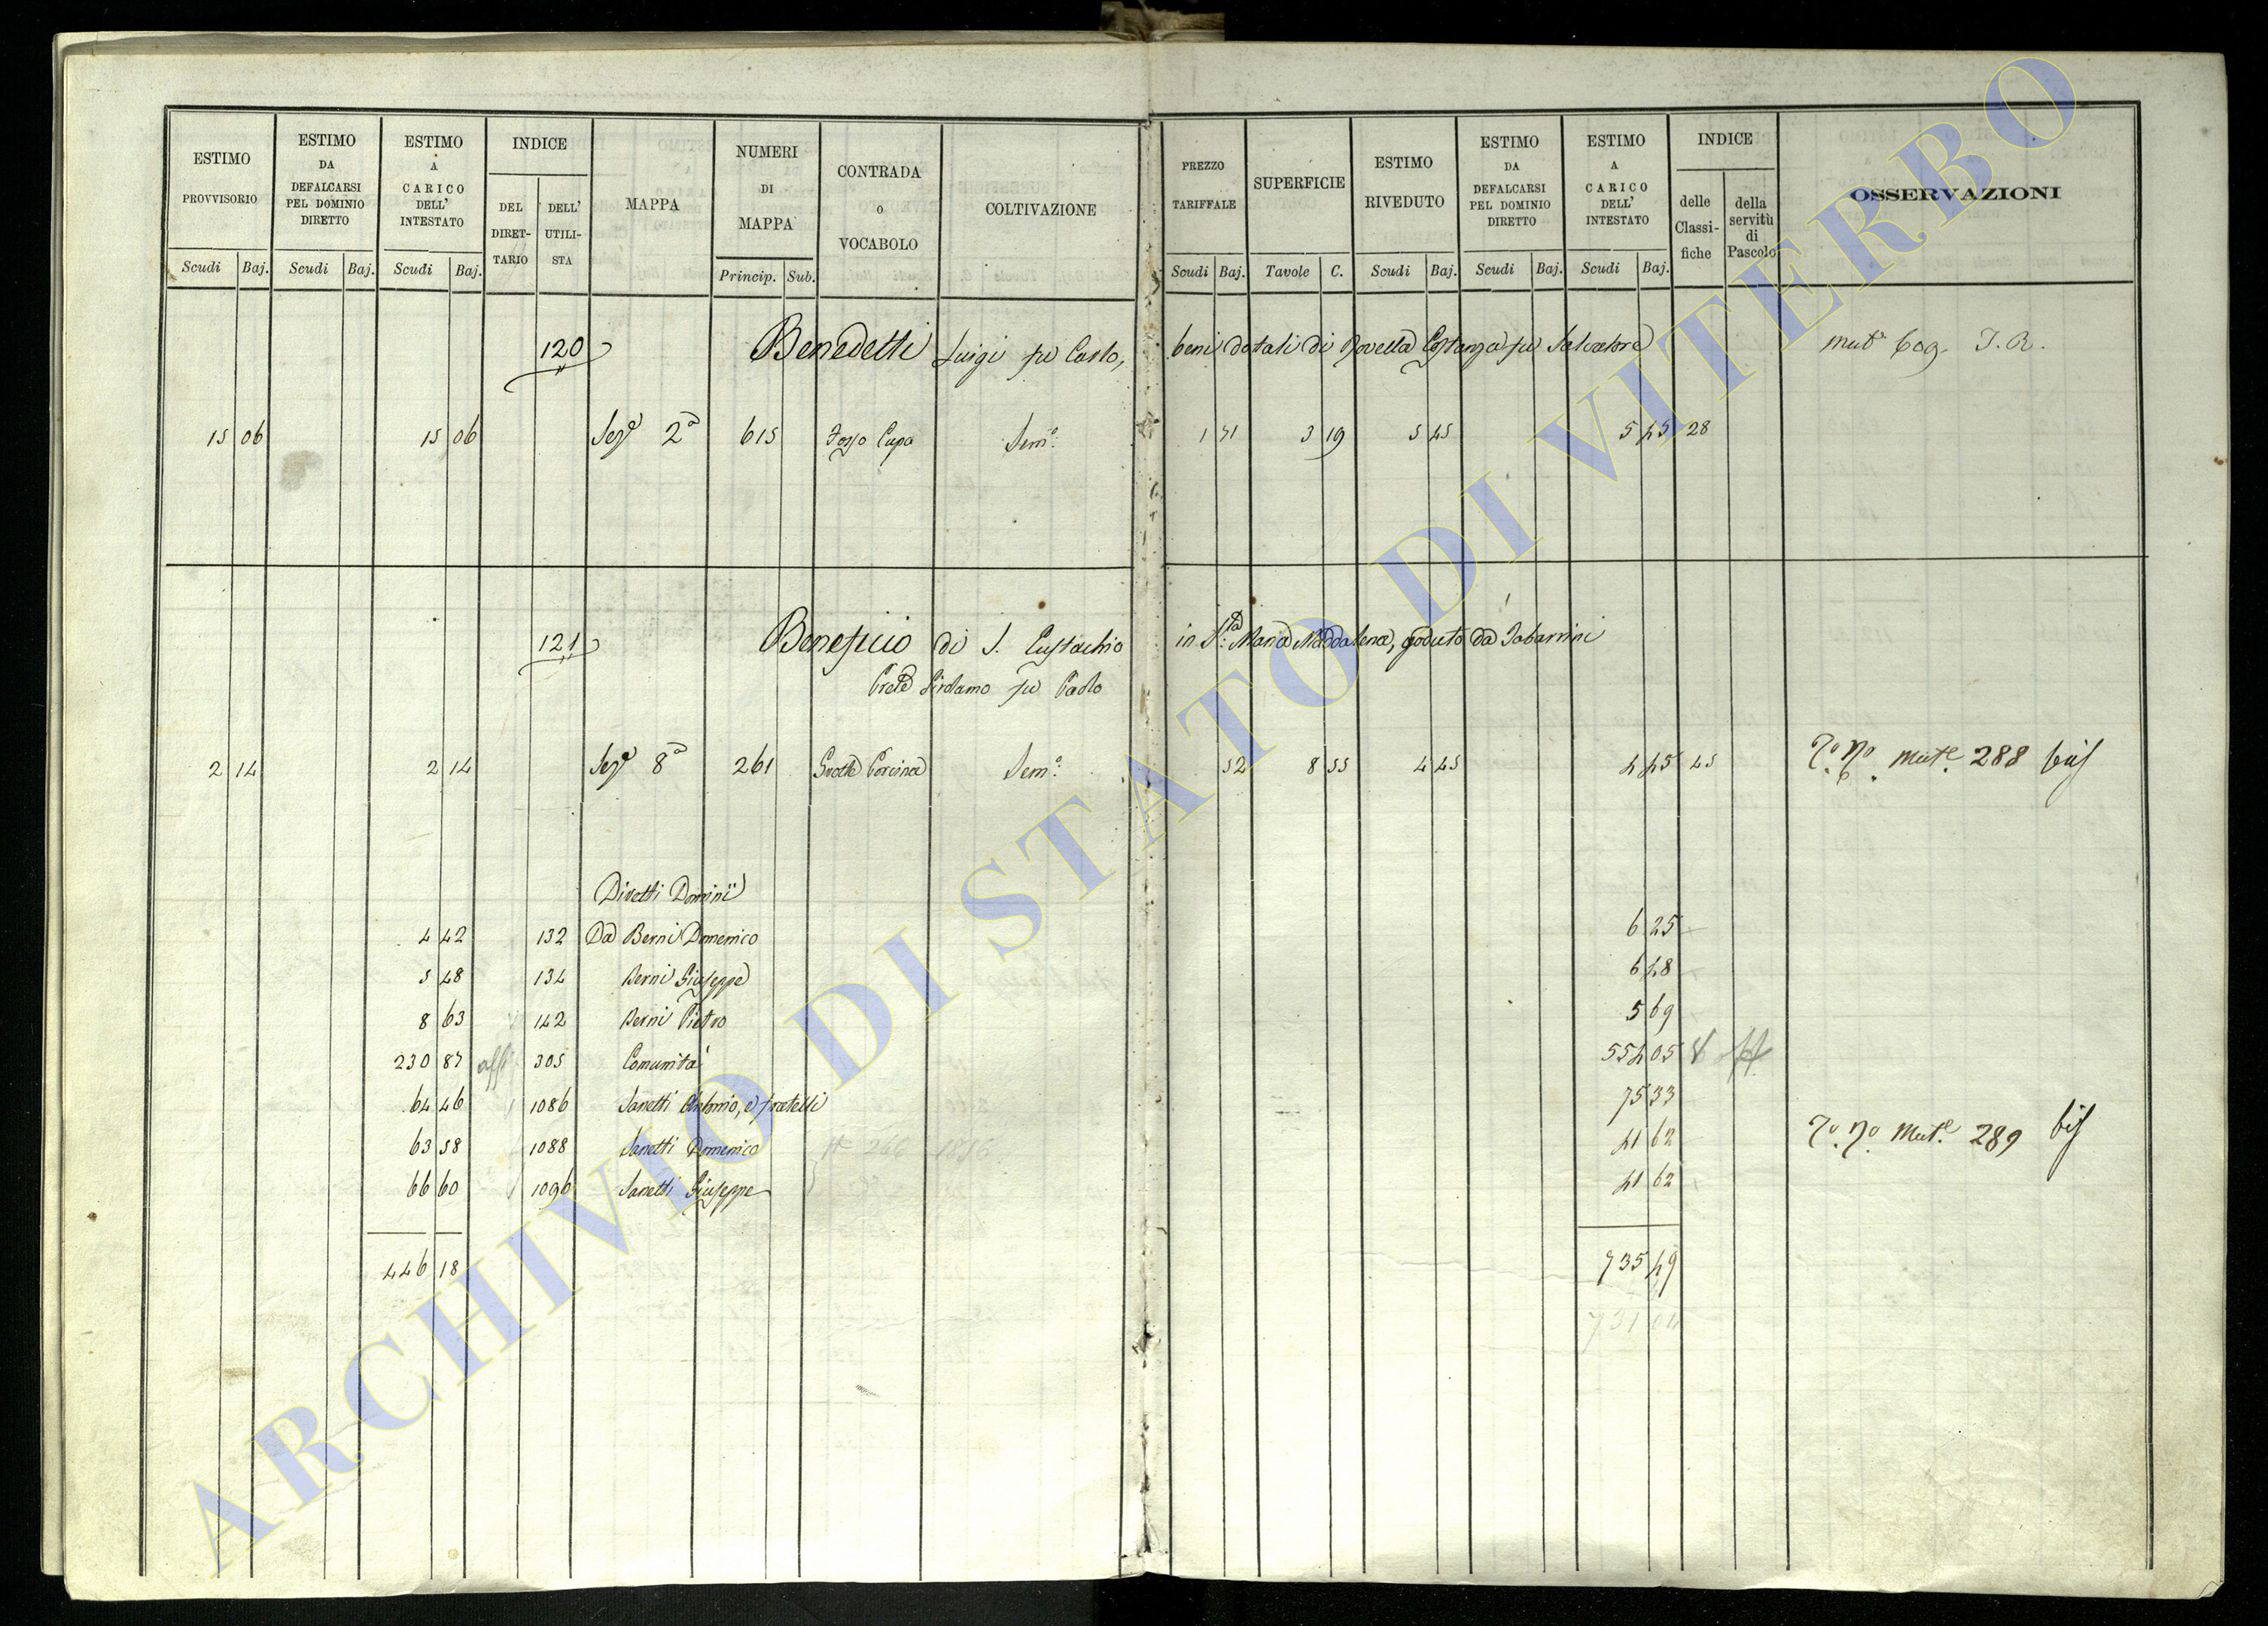 ESTIMO PROVVISORIO
ESTIMO DA DEFALCARSI PEL DOMINIO DIRETTO
ESTIMO A CARICO DELL' INTESTATO
INDICE
DEL DIRET-TARIO
DELL' UTILI-STA
MAPPA
NUMERI DI MAPPA
CONTRADA O VOCABOLO
COLTIVAZIONE
PREZZO TARIFFALE
SUPERFICIE
ESTIMO RIVEDUTO
ESTIMO DA DEFALCARSI PEL DOMINIO DIRETTO
ESTIMO A CARICO DELL' INTESTATO
INDICE
delle Classi-fiche
della servitù di Pascolo
OSSERVAZIONI
Scudi Baj. Scudi Baj. Scudi Baj. Princip. Sub. Scudi Baj. Tavole C. Scudi Baj. Scudi Baj. Scudi Baj.
120 Benedetti Luigi fu Carlo, beni dotali di Novella Costanza fu Salvatore
15 06 15 06 Seze 2a 615 Fosso Cupo Semo. 1 71 3 19 5 45 5 45 28
121 Beneficio di S. Eustachio in Sta: Maria Maddalena, goduto da Tabarrini
Prete Girolamo fu Paolo
2 14 2 14 Seze 8a 261 Grotte Porcine Semo. 52 8 55 4 45 4 45 45 mute. 288 bis
Diretti Dominii
4 42 132 Da Berni Domenico 6 25
5 48 134 Berni Giuseppe 6 48
8 63 142 Berni Pietro 5 69
230 87 305 Comunita' 554 05
64 46 1086 Sanetti Antonio, e fratelli 75 33
63 58 1088 Sanetti Domenico 41 62 Mute. 289 bis
66 60 1096 Sanetti Giuseppe 41 62
446 18 735 49
ARCHIVIO DI STATO DI VITERBO